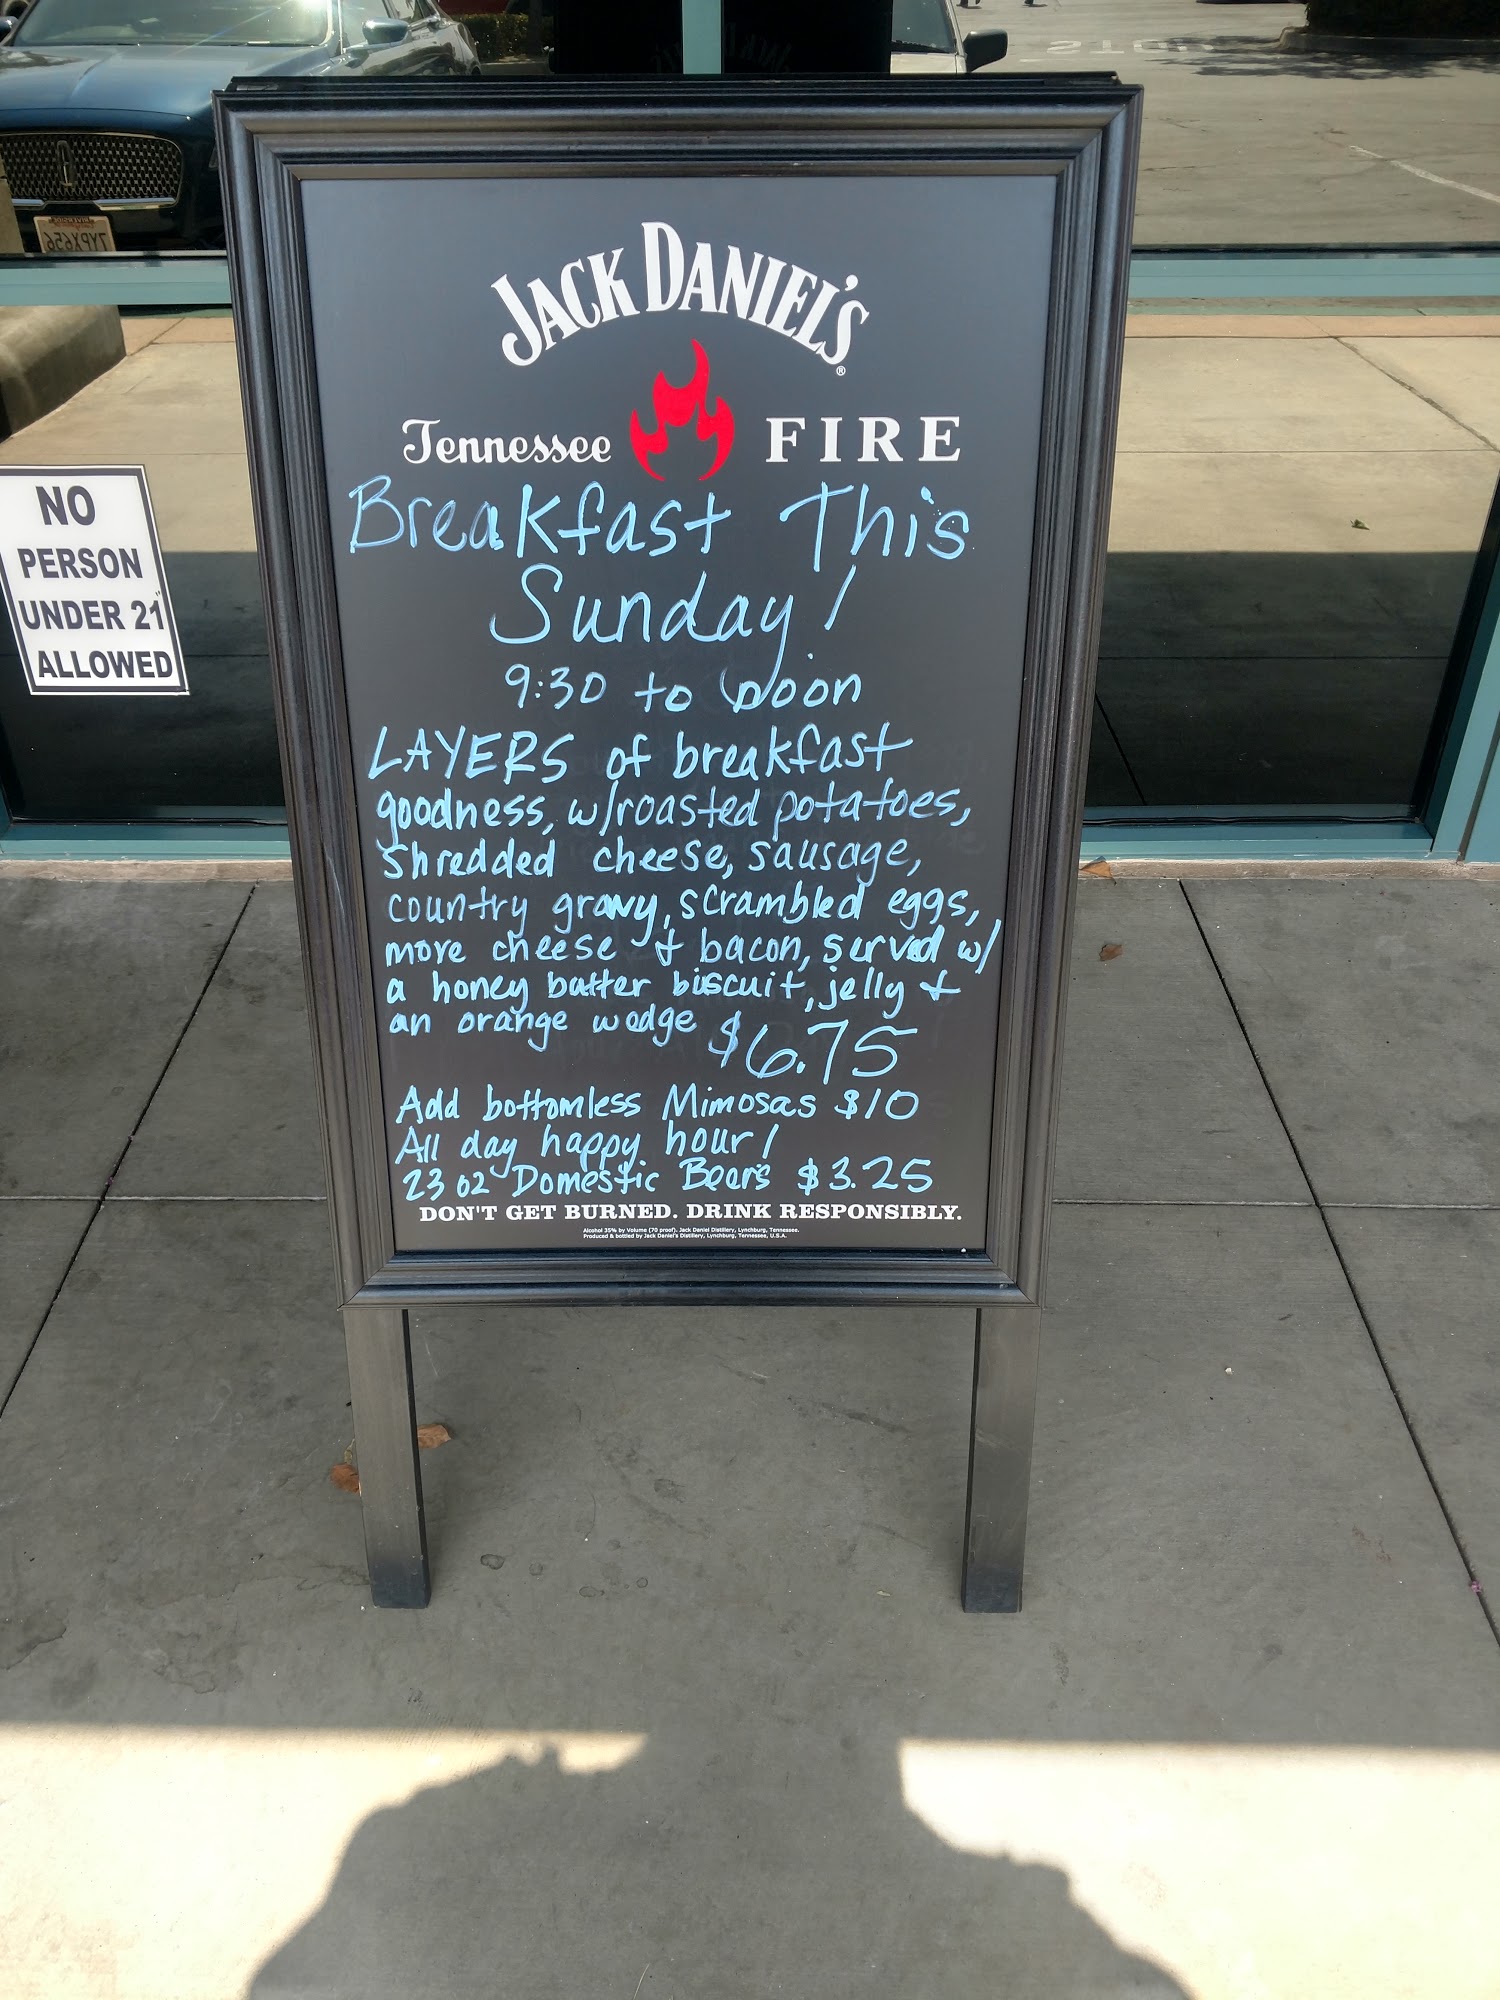 JACK DANIEL'S®
Tennessee FIRE
Breakfast This
Sunday!
9:30 to noon
LAYERS of breakfast
goodness, w/roasted potatoes,
shredded cheese, sausage,
country gravy, scrambled eggs,
more cheese & bacon, served w/
a honey butter biscuit, jelly &
an orange wedge $6.75
Add bottomless Mimosas $10
All day happy hour!
23 oz Domestic Beers $3.25
DON'T GET BURNED. DRINK RESPONSIBLY.
Alcohol 35% by Volume (70 proof). Jack Daniel Distillery, Lynchburg, Tennessee.
Produced & bottled by Jack Daniel's Distillery, Lynchburg, Tennessee, U.S.A.
NO
PERSON
UNDER 21
ALLOWED
7YPX656
STOP